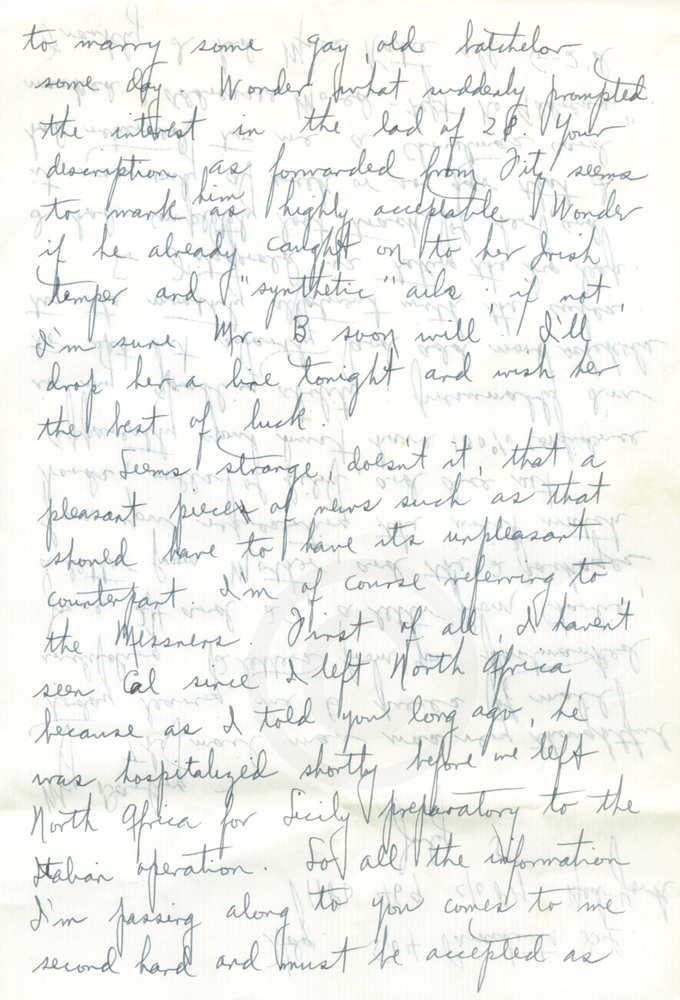 to marry some gay old batchelor
some day. Wonder what suddenly prompted
the interest in the lad of 28. Your
description as forwarded from Fitz seems
to mark him as highly acceptable. Wonder
if he already caught on to her Irish
temper and "synthetic" ails; if not,
I'm sure Mr. B soon will. I'll
drop her a line tonight and wish her
the best of luck.
Seems strange, doesn't it, that a
pleasant piece of news such as that
should have to have its unpleasant
counterpart. I'm of course referring to
the Messners. First of all, I haven't
seen Cal since I left North Africa
because as I told you long ago, he
was hospitalized shortly before we left
North Africa for Sicily preparatory to the
Italian operation. So all the information
I'm passing along to you comes to me
second hand and must be accepted as